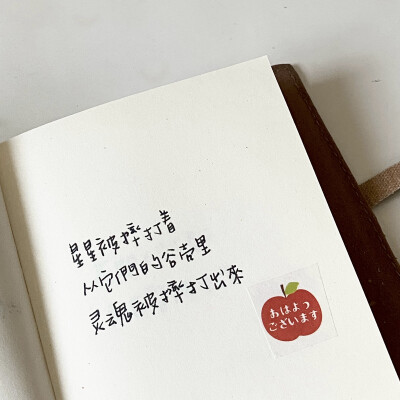 星星被摔打着
从它們的谷壳里
灵魂被摔打出來
おはよう
ございます